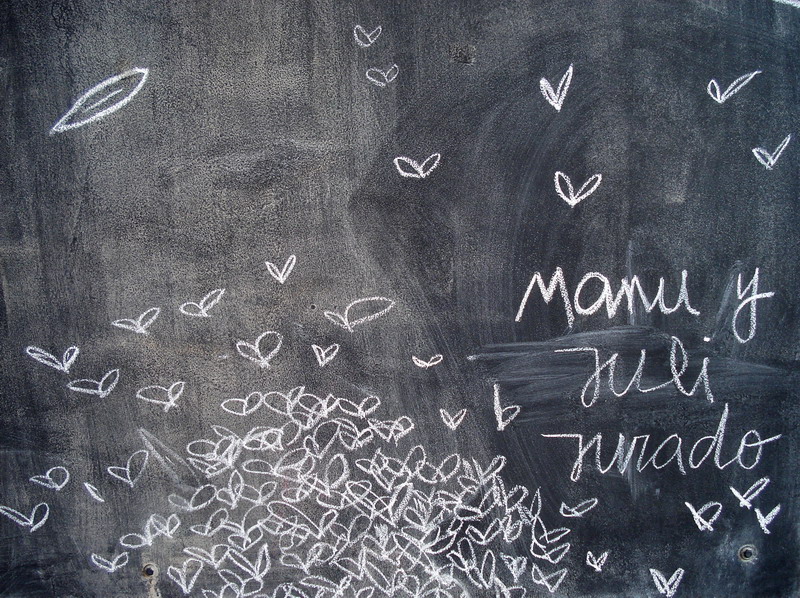 Manu y
Juli
Jurado